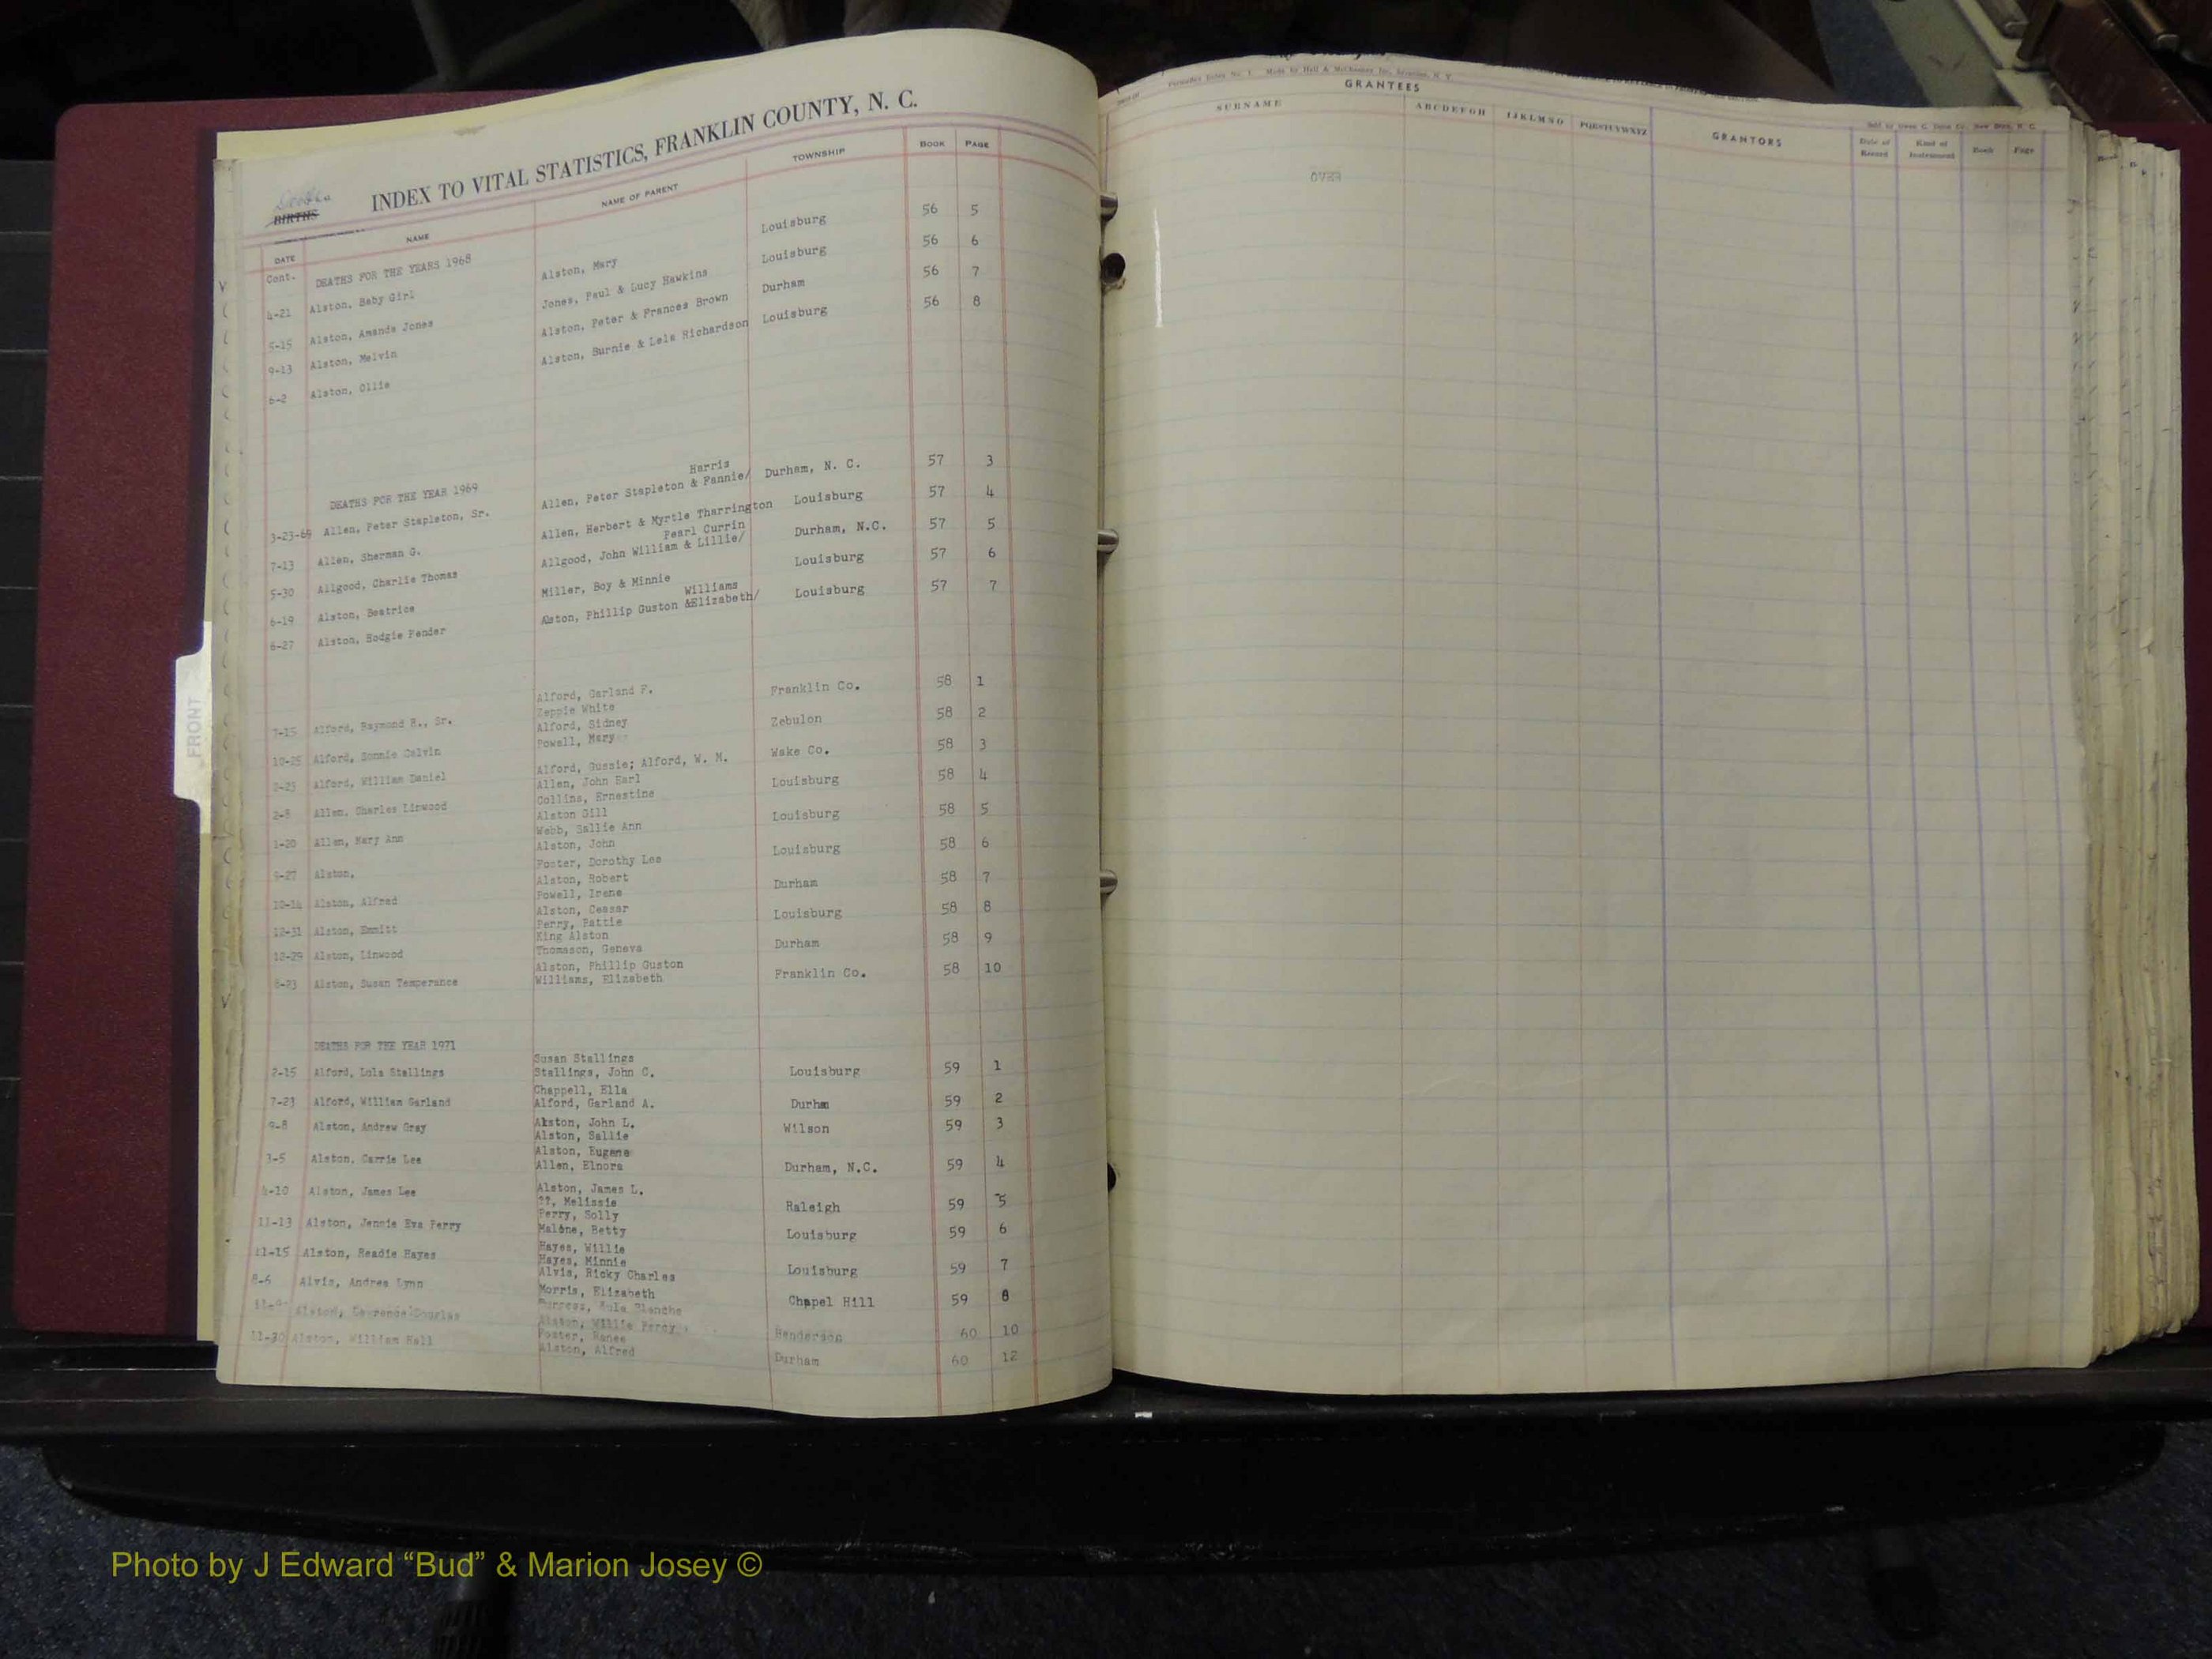 INDEX TO VITAL STATISTICS, FRANKLIN COUNTY, N. C.
Deaths
BIRTHS
DATE NAME NAME OF PARENT TOWNSHIP BOOK PAGE
Cont. DEATHS FOR THE YEARS 1968
4-21 Alston, Baby Girl Alston, Mary Louisburg 56 5
5-15 Alston, Amanda Jones Jones, Paul & Lucy Hawkins Louisburg 56 6
9-13 Alston, Melvin Alston, Peter & Frances Brown Durham 56 7
6-2 Alston, Ollie Alston, Burnie & Lela Richardson Louisburg 56 8
DEATHS FOR THE YEAR 1969
Harris
3-23-69 Allen, Peter Stapleton, Sr. Allen, Peter Stapleton & Fannie/ Durham, N. C. 57 3
7-13 Allen, Sherman G. Allen, Herbert & Myrtle Tharrington Louisburg 57 4
Pearl Currin
5-30 Allgood, Charlie Thomas Allgood, John William & Lillie/ Durham, N.C. 57 5
6-19 Alston, Beatrice Miller, Boy & Minnie Louisburg 57 6
Williams
6-27 Alston, Hodgie Pender Alston, Phillip Guston &Elizabeth/ Louisburg 57 7
Alford, Garland F. Franklin Co. 58 1
7-15 Alford, Raymond R., Sr. Zeppie White
Alford, Sidney Zebulon 58 2
10-25 Alford, Sonnie Calvin Powell, Mary
Alford, William Daniel Alford, Gussie; Alford, W. M. Wake Co. 58 3
2-8 Allen, Charles Linwood Allen, John Earl Louisburg 58 4
Collins, Ernestine
1-20 Allen, Mary Ann Alston Gill Louisburg 58 5
Webb, Sallie Ann
9-27 Alston, Alston, John Louisburg 58 6
Foster, Dorothy Lee
10-14 Alston, Alfred Alston, Robert Durham 58 7
Powell, Irene
12-31 Alston, Emmitt Alston, Ceasar Louisburg 58 8
Perry, Pattie
12-29 Alston, Linwood King Alston Durham 58 9
Thomason, Geneva
8-23 Alston, Susan Temperance Alston, Phillip Guston Franklin Co. 58 10
Williams, Elizabeth
DEATHS FOR THE YEAR 1971
Susan Stallings
2-15 Alford, Lula Stallings Stallings, John C. Louisburg 59 1
Chappell, Ella
7-23 Alford, William Garland Alford, Garland A. Durham 59 2
9-8 Alston, Andrew Gray Alston, John L. Wilson 59 3
Alston, Sallie
3-5 Alston, Carrie Lee Alston, Eugene Durham, N.C. 59 4
Allen, Elnora
4-10 Alston, James Lee Alston, James L. Raleigh 59 5
??, Melissie
11-13 Alston, Jennie Eva Perry Perry, Solly Louisburg 59 6
Malone, Betty
11-15 Alston, Readie Hayes Hayes, Willie Louisburg 59 7
Hayes, Minnie
8-6 Alvis, Andrea Lynn Alvis, Ricky Charles Chapel Hill 59 8
Morris, Elizabeth
Alston, Lawrence Douglas Burgess, Blanche Henderson 60 10
Alston, Willie Percy
11-30 Alston, William Hall Foster, Ranee Durham 60 12
Alston, Alfred
FRONT
GRANTEES
SURNAME ABCDEFGH IJKLMNO PQRSTUVWXYZ GRANTORS Date of Record Kind of Instrument Book Page
OVER
Photo by J Edward “Bud” & Marion Josey ©